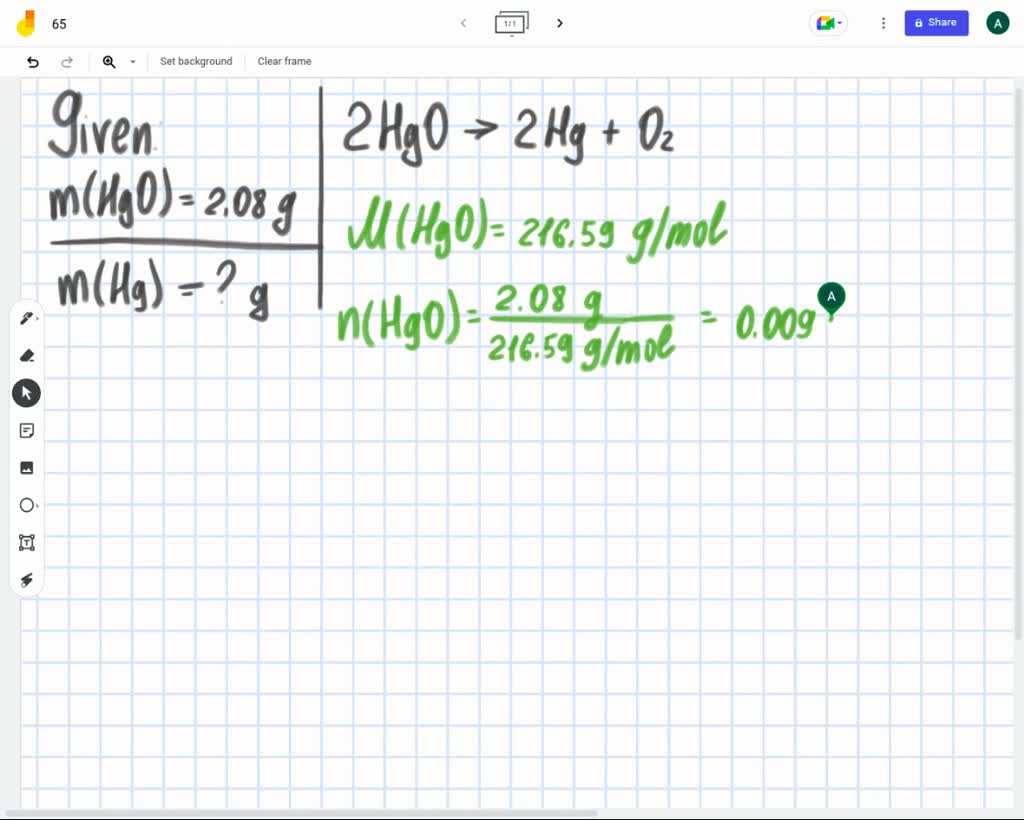 65
1/1
Share
A
Set background
Clear frame
Given:
m(HgO) = 2.08 g
m(Hg) = ? g
2HgO → 2Hg + O₂
M(HgO) = 216.59 g/mol
n(HgO) = 2.08 g / 216.59 g/mol = 0.009
A